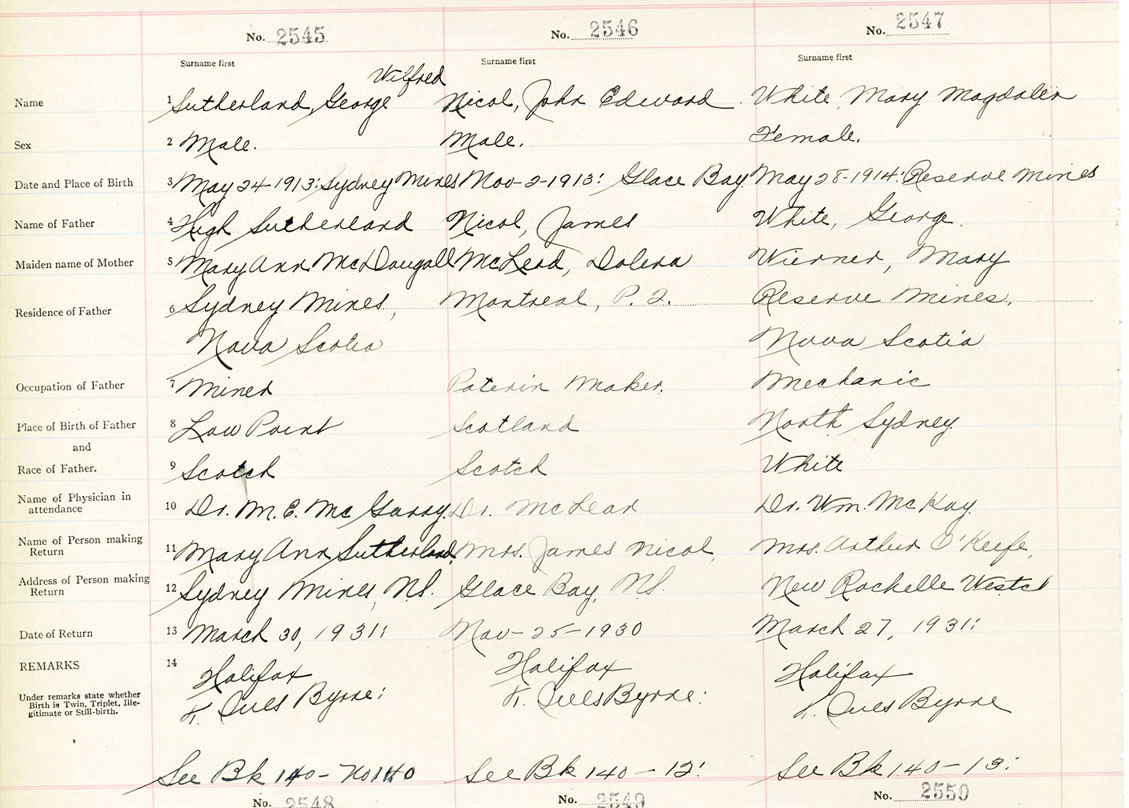 No. 2545 No. 2546 No. 2547
Surname first Surname first Surname first
Wilfred
Name 1 Sutherland, George Nicol, John Edward White, Mary Magdalen
Sex 2 Male. Male. Female.
Date and Place of Birth 3 May 24-1913: Sydney Mines Nov-2-1913: Glace Bay May 28-1914: Reserve Mines
Name of Father 4 Hugh Sutherland Nicol, James White, George
Maiden name of Mother 5 Mary Ann McDougall McLeod, Dolena Mary
Residence of Father 6 Sydney Mines, Montreal, P.Q. Reserve Mines,
Nova Scotia Nova Scotia
Occupation of Father 7 Miner Patern Maker. Mechanic
Place of Birth of Father 8 Low Point Scotland North Sydney
and
Race of Father. 9 Scotch Scotch White
Name of Physician in
attendance 10 Dr. M. E. McGarry. Dr. McLean Dr. Wm. McKay.
Name of Person making
Return 11 Mary Ann Sutherland, Mrs. James Nicol, Mrs. Arthur O'Keefe,
Address of Person making
Return 12 Sydney Mines, N.S. Glace Bay, N.S. New Rochelle
Date of Return 13 March 30, 1931: Nov-25-1930 March 27, 1931:
REMARKS 14 Halifax Halifax Halifax
Under remarks state whether
Birth is Twin, Triplet, Ille-
gitimate or Still-birth.
Byrne: Byrne: Byrne
See Bk 140- No 140 See Bk 140-12: See Bk 140-13:
No. 2548 No. 2549 No. 2550